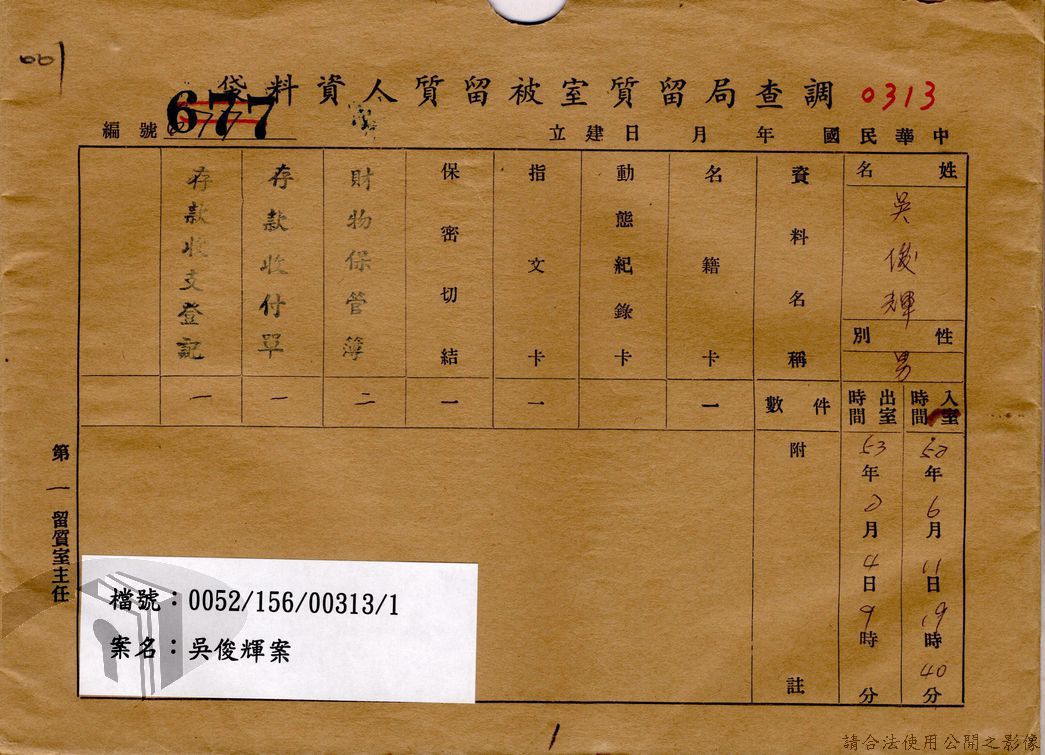 001
調查局留質室被留質人資料袋
0313
677
編號
中華民國 年 月 日建立
姓名
吳俊輝
性別
男
入室時間
52年6月11日19時40分
出室時間
53年2月4日9時 分
資料名稱
件數
附註
名籍卡
一
動態紀錄卡
指文卡
一
保密切結
一
財物保管簿
二
存款收付單
一
存款收支登記
一
第一留質室主任
檔號：0052/156/00313/1
案名：吳俊輝案
1
請合法使用公開之影像